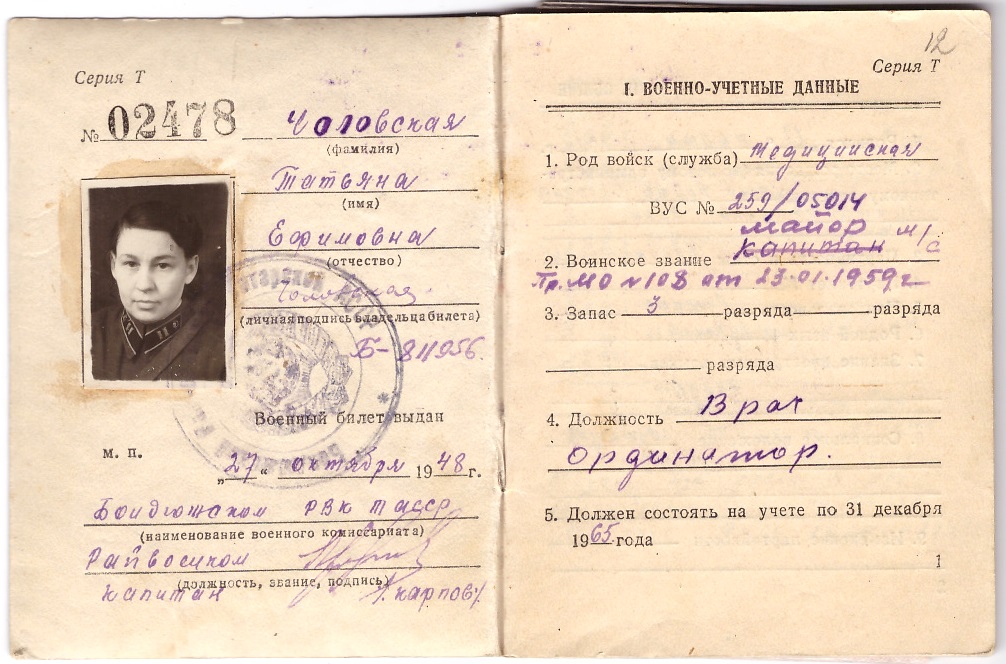 Серия Т
№ 02478
Чоловская
(фамилия)
Татьяна
(имя)
Ефимовна
(отчество)
Чоловская
(личная подпись владельца билета)
Б-811956
Военный билет выдан
м. п.
„27“ октября 1948 г.
Бондюжском РВК ТАССР
(наименование военного комиссариата)
Райвоенком
(должность, звание, подпись)
капитан /Карпов/
12
Серия Т
I. ВОЕННО-УЧЕТНЫЕ ДАННЫЕ
1. Род войск (служба) Медицинская
ВУС № 259/05014
майор м/с
2. Воинское звание капитан
Пр. МО №108 от 23.01.1959г
3. Запас 3 разряда разряда
разряда
4. Должность Врач
ординатор.
5. Должен состоять на учете по 31 декабря
1965 года
1